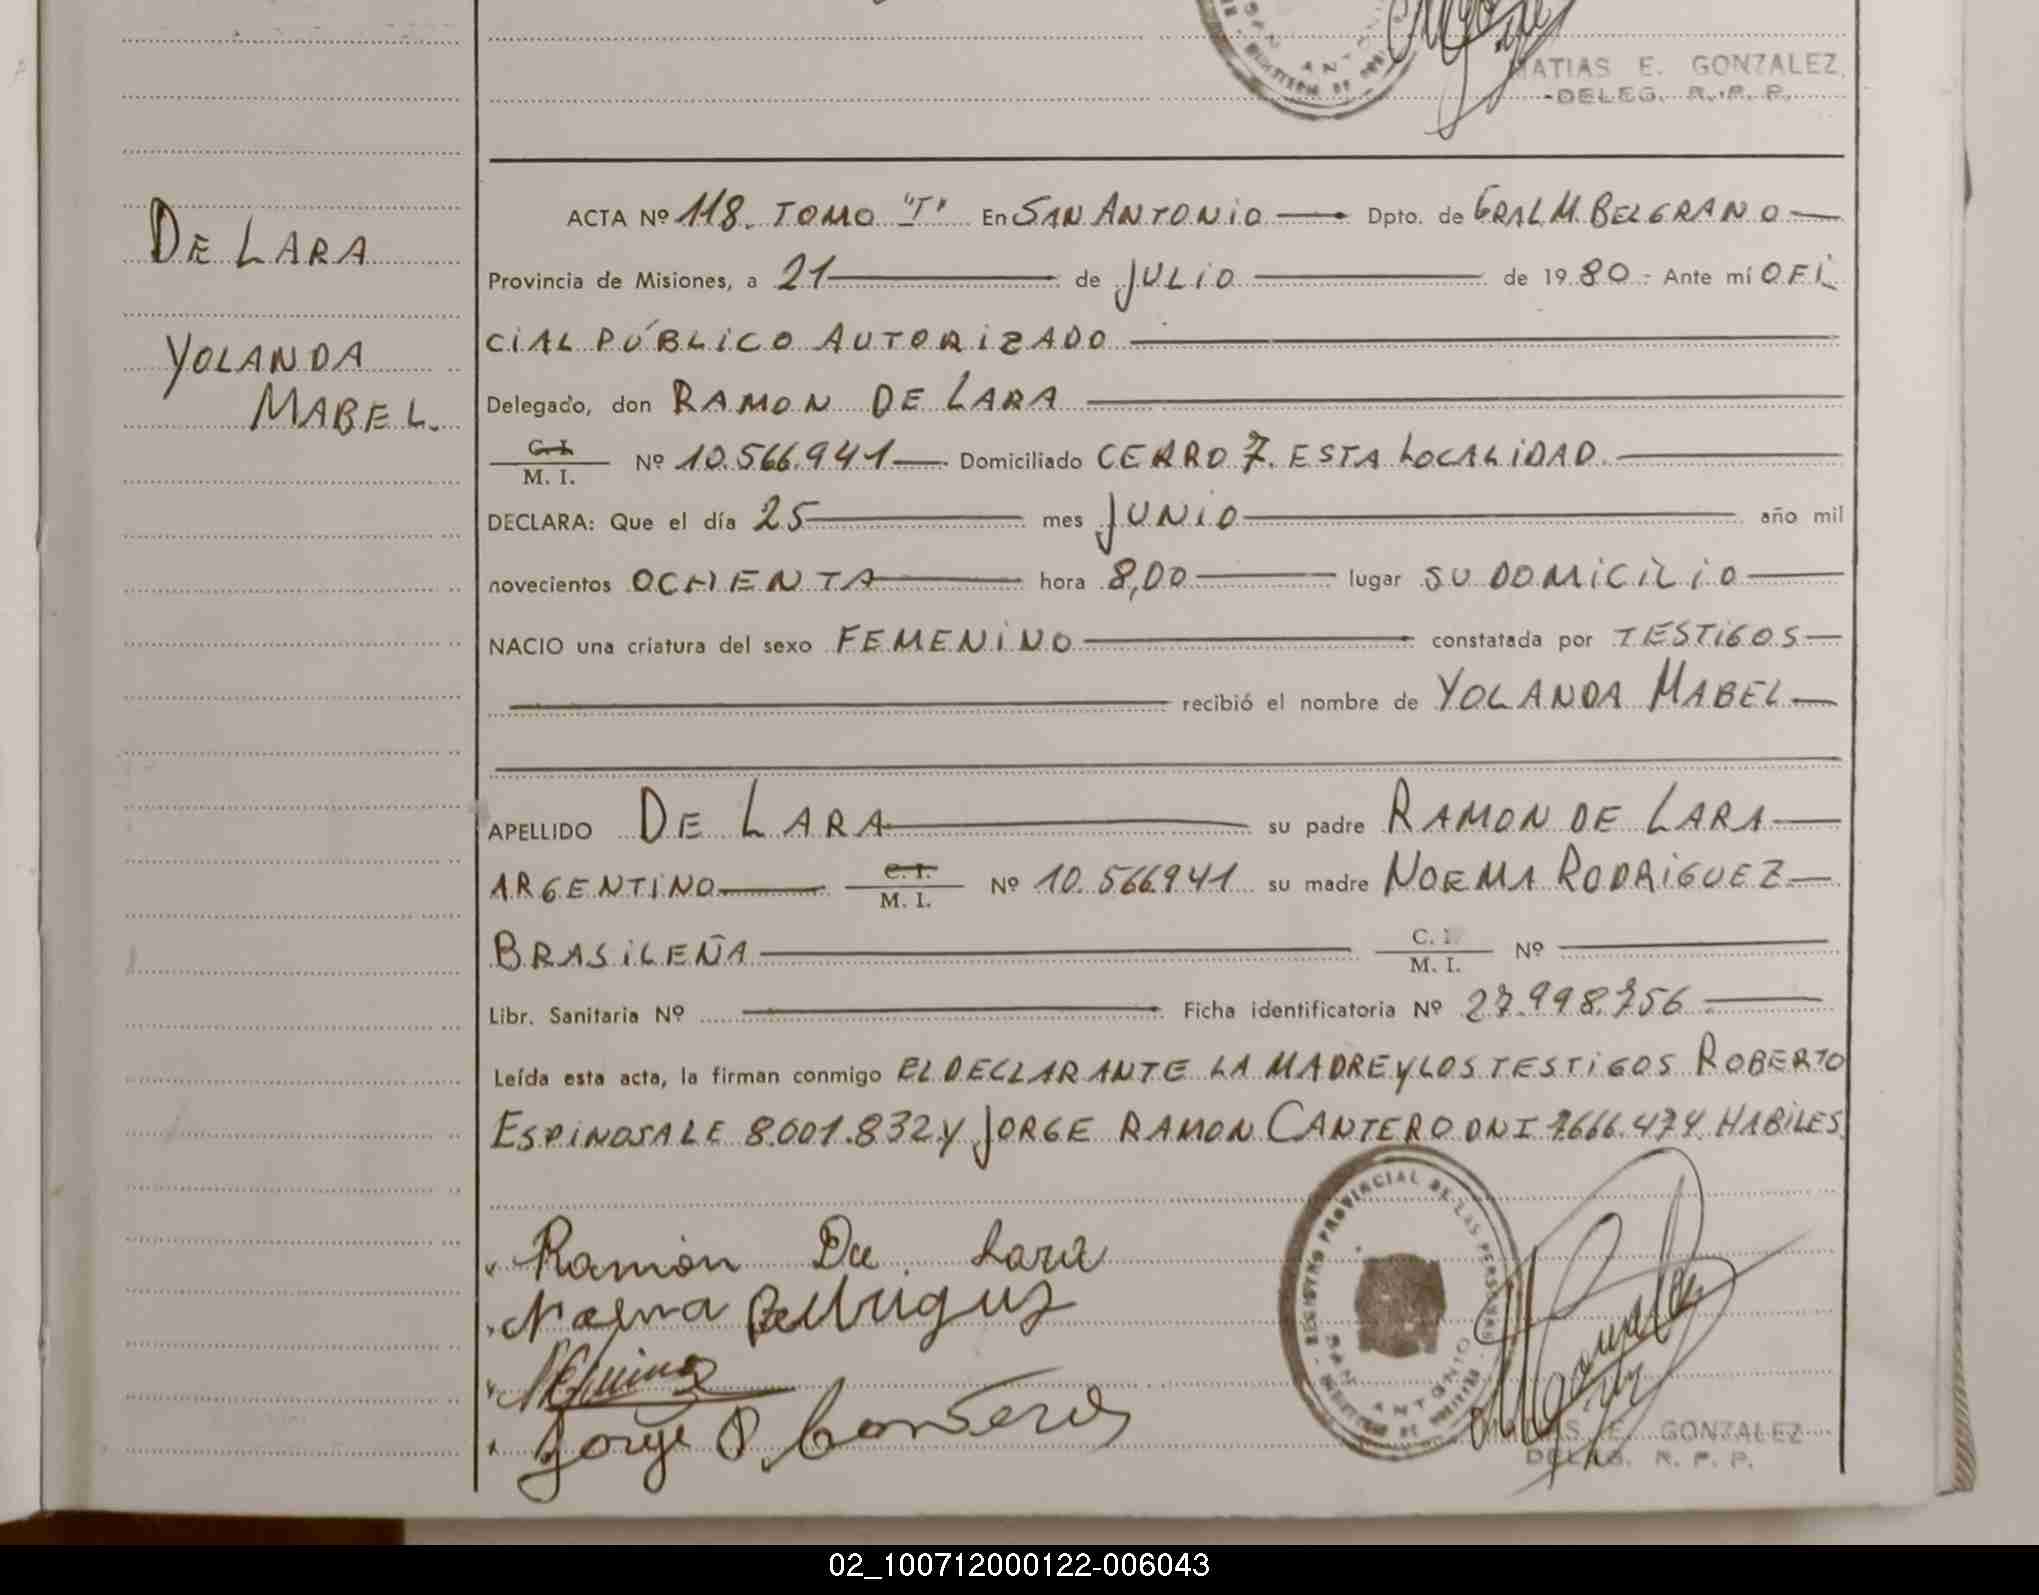 MATIAS E. GONZALEZ
DELEG. R. P. P.
DE LARA
YOLANDA
MABEL.
ACTA Nº 118. TOMO "I" En SAN ANTONIO Dpto. de GRAL M. BELGRANO
Provincia de Misiones, a 21 de JULIO de 1980.- Ante mí OFI
CIAL PÚBLICO AUTORIZADO
Delegado, don RAMON DE LARA
C. I.
M. I. Nº 10.566.941 Domiciliado CERRO 7. ESTA LOCALIDAD.
DECLARA: Que el día 25 mes JUNIO año mil
novecientos OCHENTA hora 8,00 lugar SU DOMICILIO
NACIO una criatura del sexo FEMENINO constatada por TESTIGOS
recibió el nombre de YOLANDA MABEL
APELLIDO DE LARA su padre RAMON DE LARA
ARGENTINO C. I. M. I. Nº 10.566.941 su madre NOEMA RODRIGUEZ
BRASILEÑA C. I. M. I. Nº
Libr. Sanitaria Nº Ficha identificatoria Nº 27.998.756
Leída esta acta, la firman conmigo EL DECLARANTE LA MADRE Y LOS TESTIGOS ROBERTO
ESPINOSA LE 8.001.832 Y JORGE RAMON CANTERO DNI 7.666.474 HABILES
REGISTRO PROVINCIAL DE LAS PERSONAS
SAN ANTONIO
Ramón De Lara
Noema Rodriguez
Jorge R. Cantero
E. GONZALEZ
DELEG. R. P. P.
02_100712000122-006043